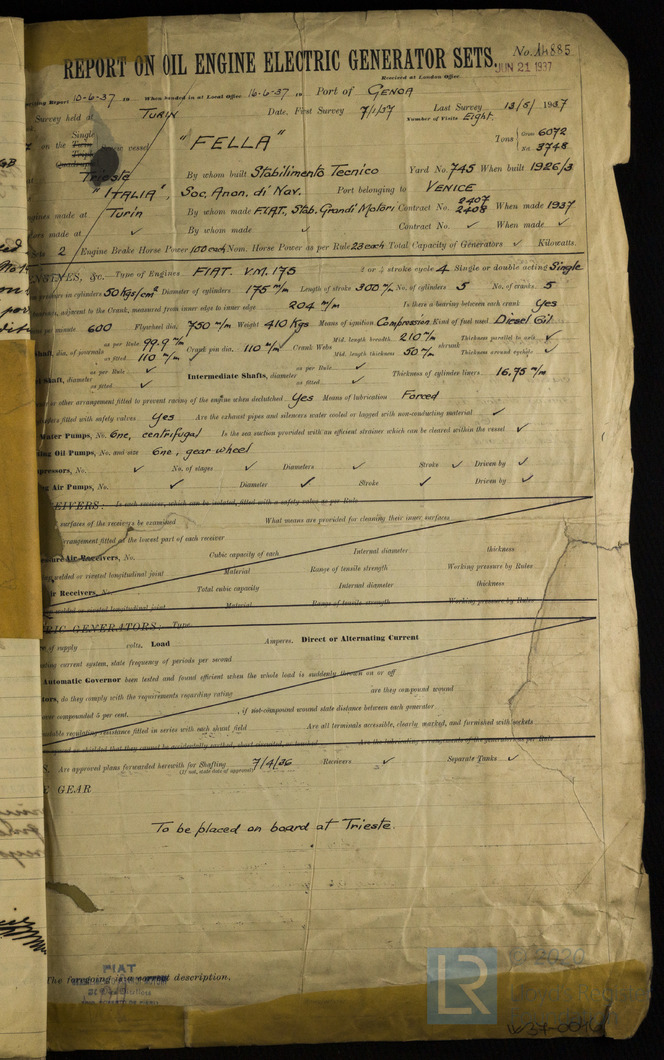 REPORT ON OIL ENGINE ELECTRIC GENERATOR SETS.
No. 14885
JUN 21 1937
Received at London Office
Report 10-6-37 19 When handed in at Local Office 16-6-37 19 Port of GENOA
Survey held at TURIN Date, First Survey 7/1/37 Last Survey 13/5/1937
Number of Visits Eight.
on the Single Twin Triple Quadruple vessel "FELLA" Tons Gross 6072 Net 3748
Trieste By whom built Stabilimento Tecnico Yard No. 745 When built 1926/3
"ITALIA", Soc. Anon. di Nav. Port belonging to VENICE
made at Turin By whom made FIAT, Stab. Grandi Motori Contract No. 2407 2408 When made 1937
made at ✓ By whom made ✓ Contract No. ✓ When made ✓
Sets 2 Engine Brake Horse Power 100 each Nom. Horse Power as per Rule 23 each Total Capacity of Generators ✓ Kilowatts.
ENGINES, &c. Type of Engines FIAT. V.M. 175 2 or 4 stroke cycle 4 Single or double acting Single
pressure in cylinders 50 Kgs/cm² Diameter of cylinders 175 m/m Length of stroke 300 m/m No. of cylinders 5 No. of cranks 5
bearings, adjacent to the Crank, measured from inner edge to inner edge 204 m/m Is there a bearing between each crank Yes
per minute 600 Flywheel dia. 750 m/m Weight 410 Kgs Means of ignition Compression Kind of fuel used Diesel Oil
Shaft, dia. of journals as per Rule 99.9 m/m as fitted 110 m/m Crank pin dia. 110 m/m Crank Webs Mid. length breadth 210 m/m Mid. length thickness 50 m/m shrunk Thickness parallel to axis ✓ Thickness around eyehole ✓
Shaft, diameter as per Rule ✓ as fitted ✓ Intermediate Shafts, diameter as per Rule ✓ as fitted ✓ Thickness of cylinder liners 16,75 m/m
or other arrangement fitted to prevent racing of the engine when declutched Yes Means of lubrication Forced
fitted with safety valves Yes Are the exhaust pipes and silencers water cooled or lagged with non-conducting material ✓
Water Pumps, No. One, centrifugal Is the sea suction provided with an efficient strainer which can be cleared within the vessel ✓
Oil Pumps, No. and size One, gear wheel
No. ✓ No. of stages ✓ Diameters ✓ Stroke ✓ Driven by ✓
Air Pumps, No. ✓ Diameter ✓ Stroke ✓ Driven by ✓
Is each receiver, which can be isolated, fitted with a safety valve as per Rule
surfaces of the receivers be examined What means are provided for cleaning their inner surfaces
arrangement fitted at the lowest part of each receiver
Air Receivers, No. Cubic capacity of each Internal diameter thickness
welded or riveted longitudinal joint Material Range of tensile strength Working pressure by Rules
Receivers, No. Total cubic capacity Internal diameter thickness
welded or riveted longitudinal joint Material Range of tensile strength Working pressure by Rules
GENERATORS: Type
of supply volts. Load Amperes. Direct or Alternating Current
alternating current system, state frequency of periods per second
Automatic Governor been tested and found efficient when the whole load is suddenly thrown on or off
do they comply with the requirements regarding rating are they compound wound
over compounded 5 per cent. , if not compound wound state distance between each generator
regulating resistance fitted in series with each shunt field Are all terminals accessible, clearly marked, and furnished with sockets
Are approved plans forwarded herewith for Shafting 7/4/36 Receivers ✓ Separate Tanks ✓
(If not, state date of approval)
GEAR
To be placed on board at Trieste.
The foregoing is a correct description,
FIAT
LR